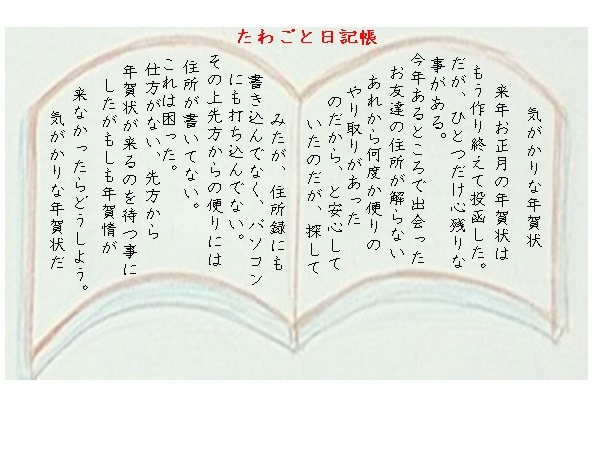 たわごと日記帳
気がかりな年賀状
来年お正月の年賀状は
もう作り終えて投函した。
だが、ひとつだけ心残りな
事がある。
今年あるところで出会った
お友達の住所が解らない
あれから何度か便りの
やり取りがあった
のだから、と安心して
いたのだが、探して
みたが、住所録にも
書き込んでなく、パソコン
にも打ち込んでない。
その上先方からの便りには
住所が書いてない。
これは困った。
仕方がない、先方から
年賀状が来るのを待つ事に
したがもしも年賀情が
来なかったらどうしよう。
気がかりな年賀状だ